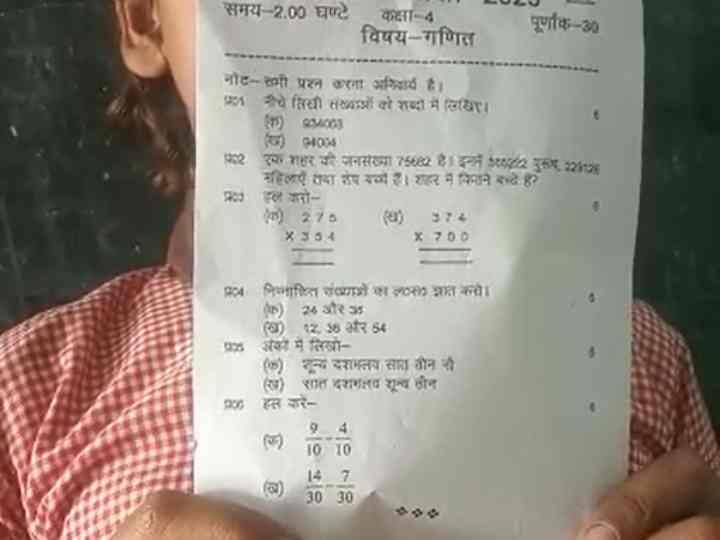 समय–2.00 घण्टे कक्षा–4 पूर्णांक–30
विषय–गणित
नोट–सभी प्रश्न करना अनिवार्य है।
प्र01 नीचे लिखी संख्याओं को शब्दों में लिखिए। 6
(क) 934003
(ख) 94004
प्र02 एक शहर की जनसंख्या 75682 है। इनमें पुरूष, 229126
महिलाएँ तथा शेष बच्चे हैं। शहर में कितने बच्चे है?
प्र03 हल करो– 6
(क) 275 (ख) 374
X 354 X 700
प्र04 निम्नांकित संख्याओं का ल0स0 ज्ञात करो। 6
(क) 24 और 36
(ख) 12, 36 और 54
प्र05 अंकों में लिखो– 6
(क) शून्य दशमलव सात तीन नौ
(ख) सात दशमलव शून्य तीन
प्र06 हल करे– 6
(क) 9/10 - 4/10
(ख) 14/30 - 7/30